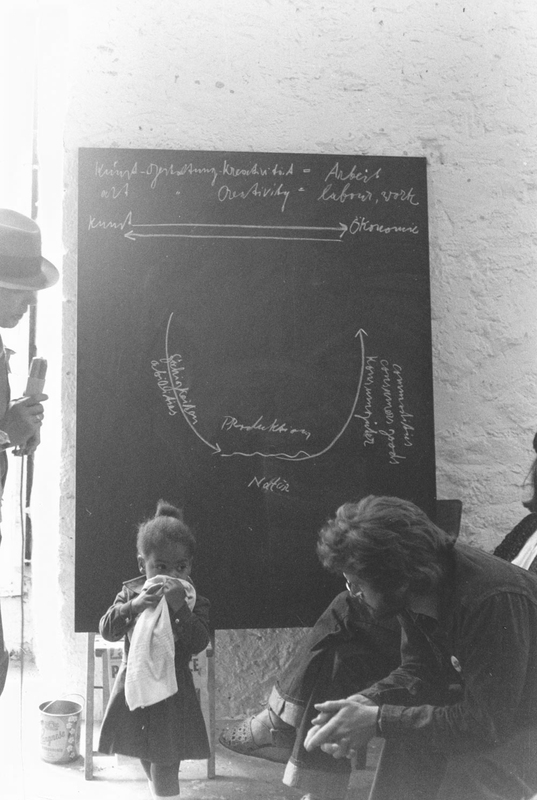 Kunst-Gestaltung-Kreativität = Arbeit
art " Creativity = labour, work
Kunst Ökonomie
Fähigkeiten
abilities
Produktion
Natur
Konsumgüter
consumer goods